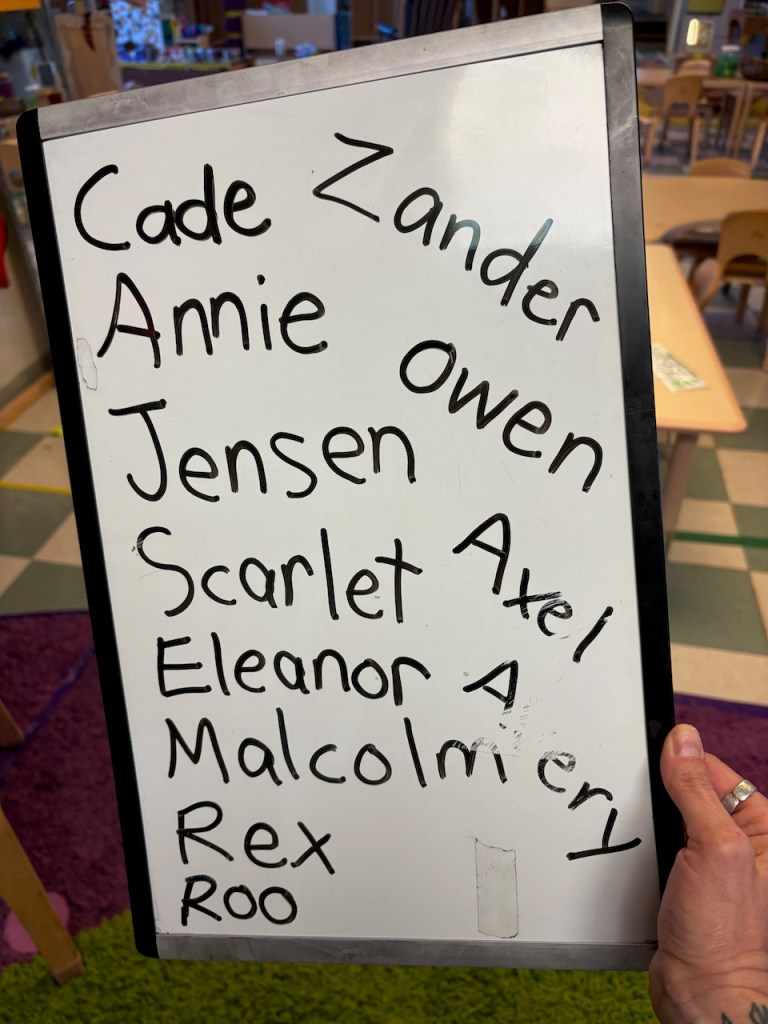 Cade
Annie
Jensen
Scarlet
Eleanor
Malcolm
Rex
Roo
Zander
Owen
Axel
A ery